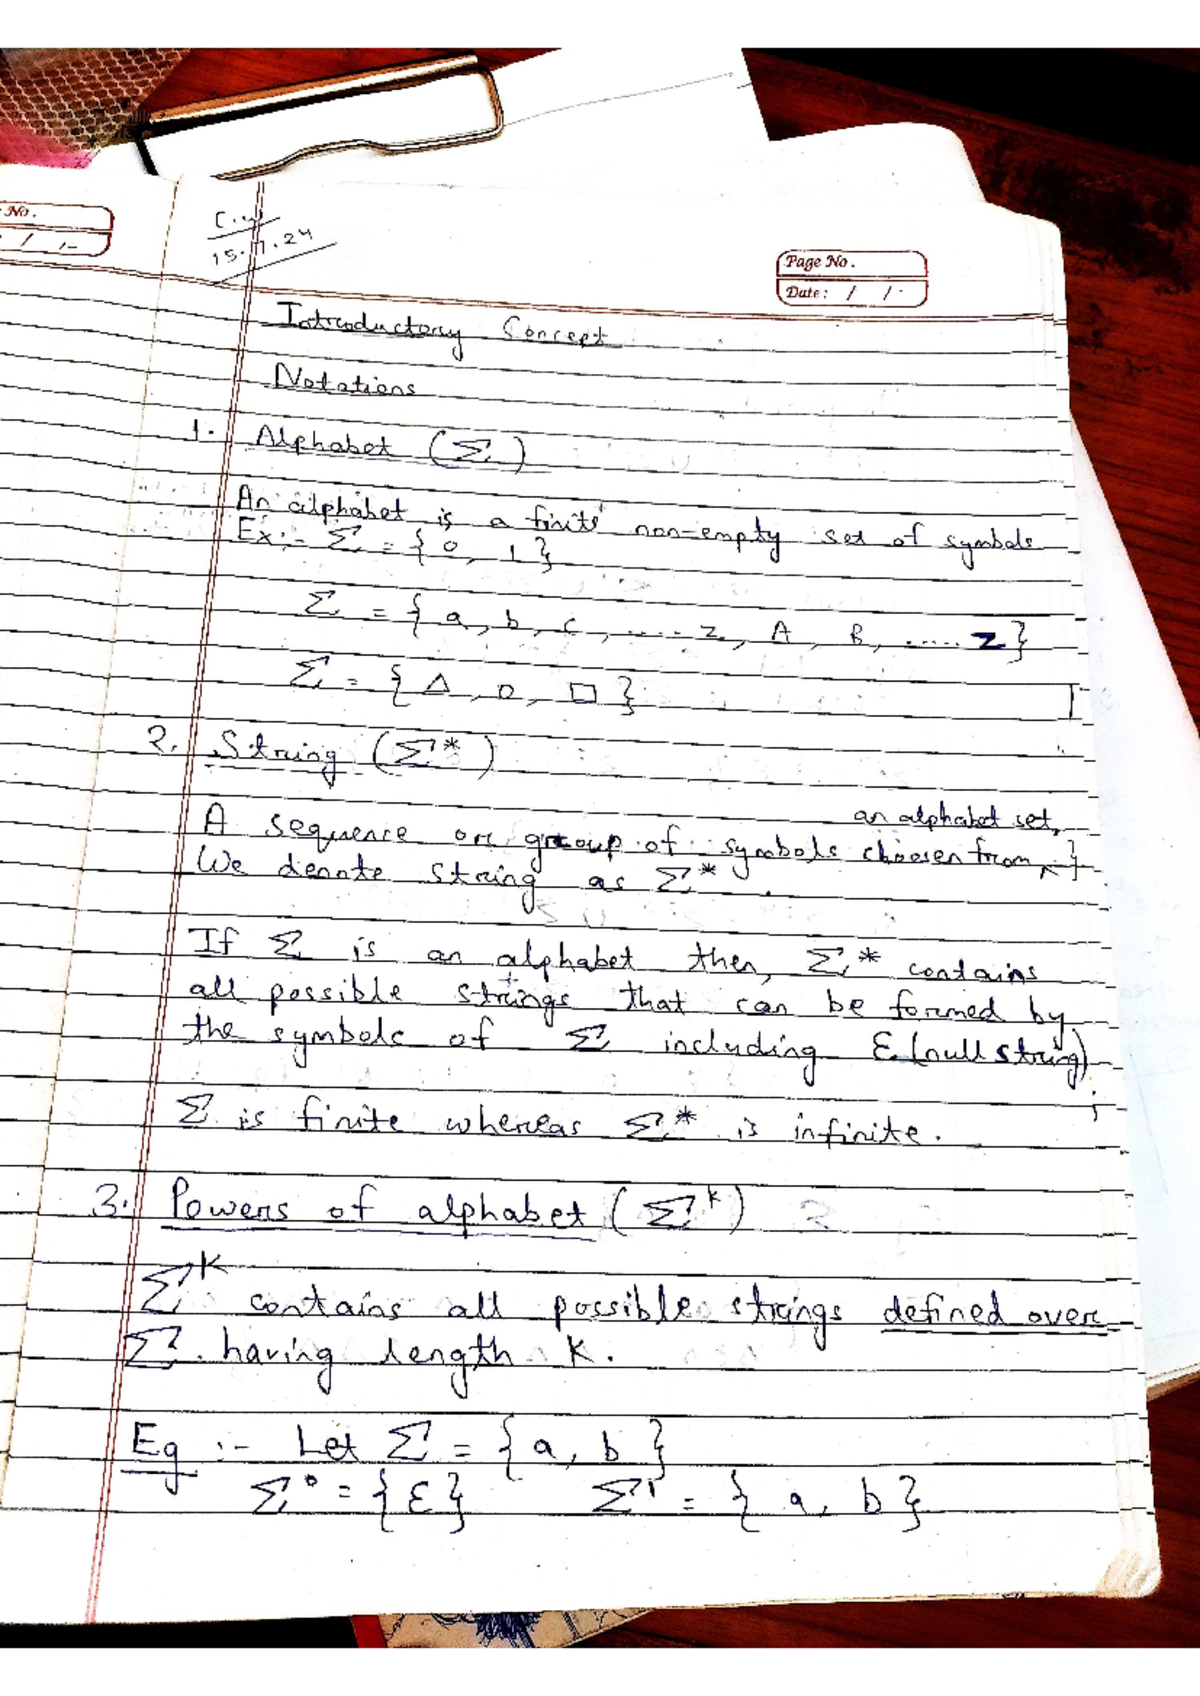 No.
/ /-
C.W
15.7.24
Page No.
Date: / /
Introductory Concept
Notations
1. Alphabet (Σ)
An alphabet is a finite non-empty set of symbols
Ex:- Σ = {0, 1}
Σ = {a, b, c, ..... z, A, B, ..... Z}
Σ = {△, ○, □}
2. String (Σ*)
an alphabet set,
A sequence or group of symbols choosen from
We denote string as Σ*.
If Σ is an alphabet then, Σ* contains
all possible strings that can be formed by
the symbols of Σ including ε (null string)
Σ is finite whereas Σ* is infinite.
3. Powers of alphabet (Σᵏ)
Σᴷ contains all possible strings defined over
Σ having length K.
Eg :- Let Σ = {a, b}
Σ⁰ = {ε} Σ¹ = {a, b}